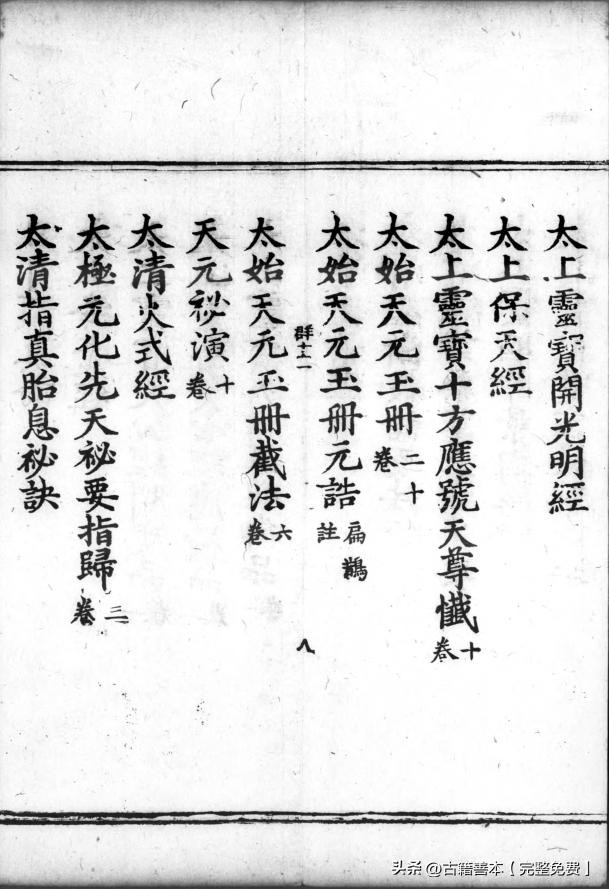 太上靈寶開光明經
太上保天經
太上靈寶十方應號天尊懺十卷
太始天元玉冊二十卷
太始天元玉冊元誥扁鵲註
群十
八
太始天元玉冊截法六卷
天元祕演十卷
太清火式經
太極元化先天祕要指歸三卷
太清指真胎息祕訣
头条 @古籍善本【完整免费】